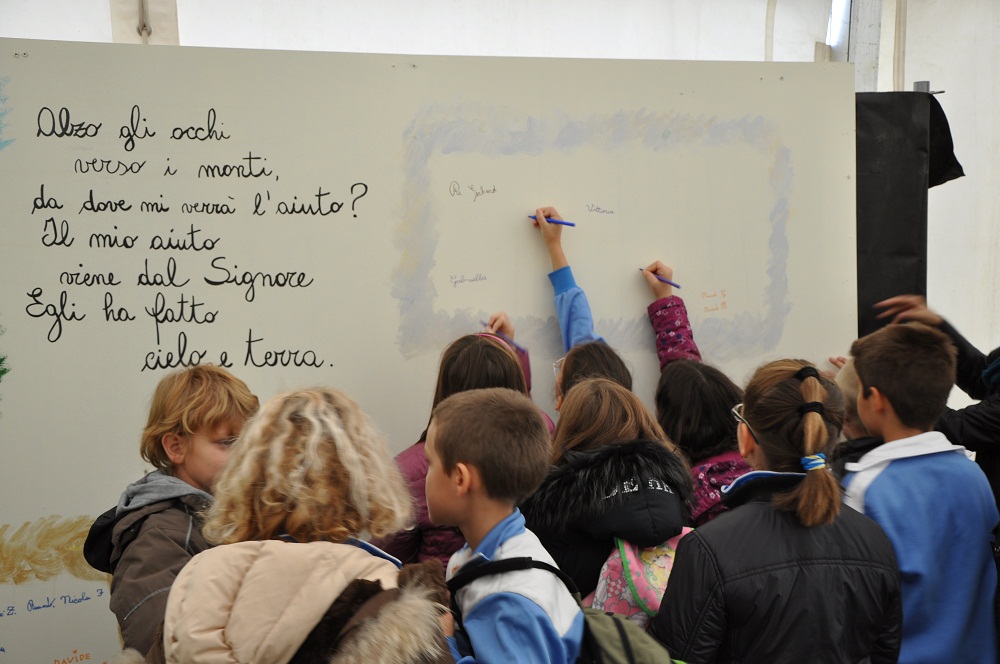 Alzo gli occhi
verso i monti,
da dove mi verrà l'aiuto?
Il mio aiuto
viene dal Signore
Egli ha fatto
cielo e terra.
Vittoria
Gabriella
Nicolò F
DAVIDE